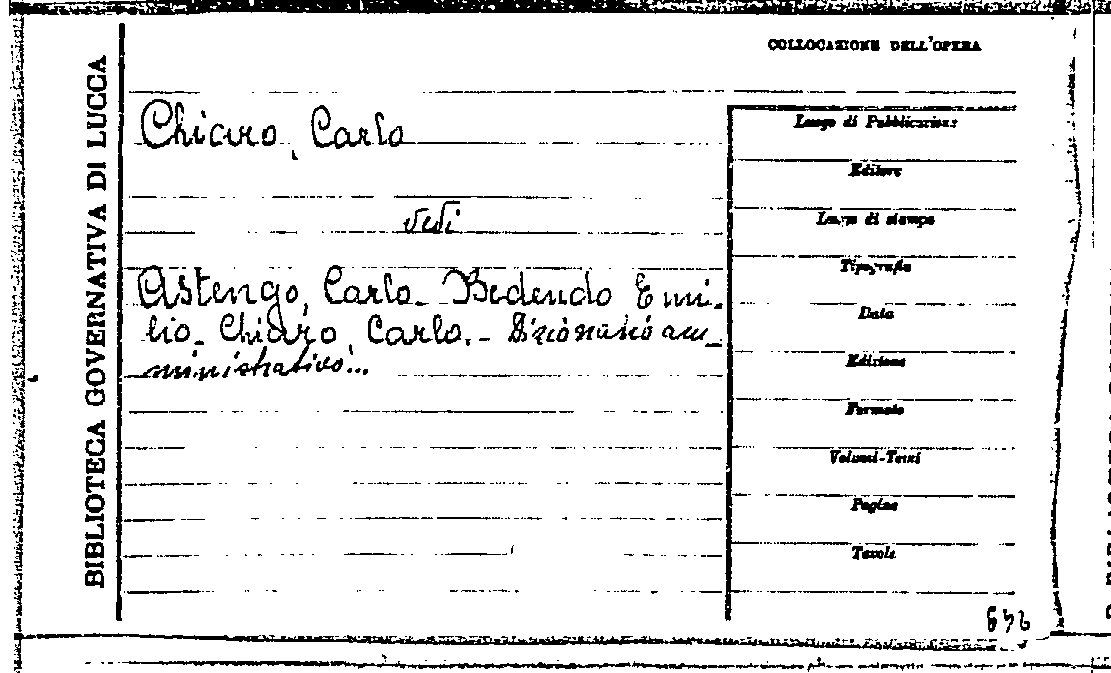 BIBLIOTECA GOVERNATIVA DI LUCCA
COLLOCAZIONE DELL'OPERA
Chiaro, Carlo
vedi
Astengo, Carlo - Bedendo Emi-
lio - Chiaro, Carlo. - Dizionario am-
ministrativo...
Luogo di Pubblicazione
Editore
Luogo di stampa
Tipografia
Data
Edizione
Formato
Volumi-Tomi
Pagine
Tavole